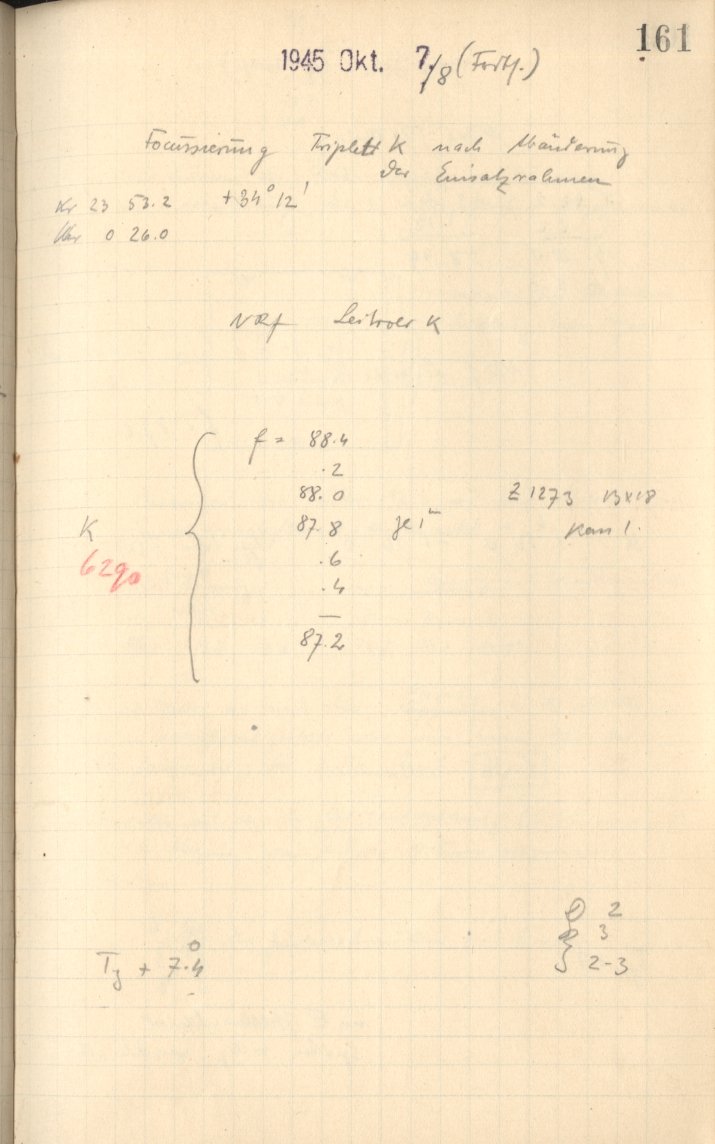 161
1945 Okt. 7./8 (Forts.)
Focussierung Triplett K nach Abänderung
der Einsatzrahmen
Kr 23 53.2 +34° 12'
Uhr 0 26.0
Leitrohr K
f = 88.4
.2
88.0 Z 1273 13x18
K 87.8 je 1m Kass 1.
6290 .6
.4
—
87.2
2
3
T + 7.4° 2-3